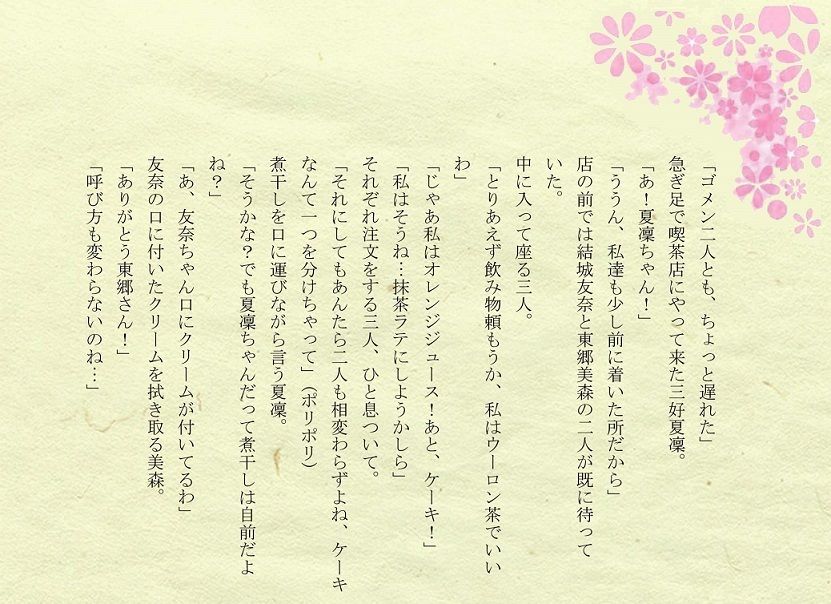 「ゴメン二人とも、ちょっと遅れた」
急ぎ足で喫茶店にやって来た三好夏凜。
「あ！夏凜ちゃん！」
「ううん、私達も少し前に着いた所だから」
店の前では結城友奈と東郷美森の二人が既に待って
いた。
中に入って座る三人。
「とりあえず飲み物頼もうか、私はウーロン茶でいい
わ」
「じゃあ私はオレンジジュース！あと、ケーキ！」
「私はそうね…抹茶ラテにしようかしら」
それぞれ注文をする三人、ひと息ついて。
「それにしてもあんたら二人も相変わらずよね、ケーキ
なんて一つを分けちゃって」（ポリポリ）
煮干しを口に運びながら言う夏凜。
「そうかな？でも夏凜ちゃんだって煮干しは自前だよ
ね？」
「あ、友奈ちゃん口にクリームが付いてるわ」
友奈の口に付いたクリームを拭き取る美森。
「ありがとう東郷さん！」
「呼び方も変わらないのね…」